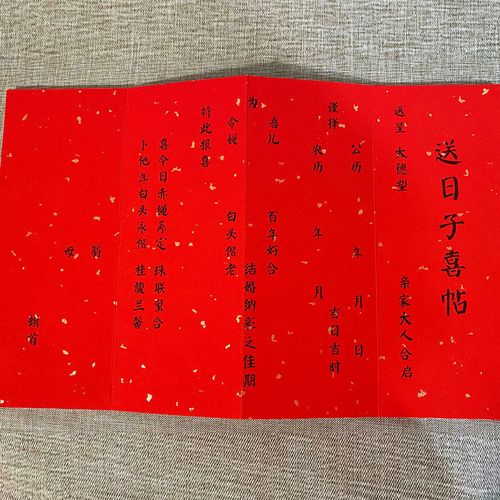 送日子喜帖
送呈 大德望 亲家大人合启
谨择 公历 年 月 日
农历 年 月 吉日吉时
为 吾儿 百年好合
令嫒 白头偕老 结婚纳彩之佳期
特此报喜
喜今日赤绳系定 珠联璧合
卜他年白头永偕 桂馥兰馨
翁
母
鞠首